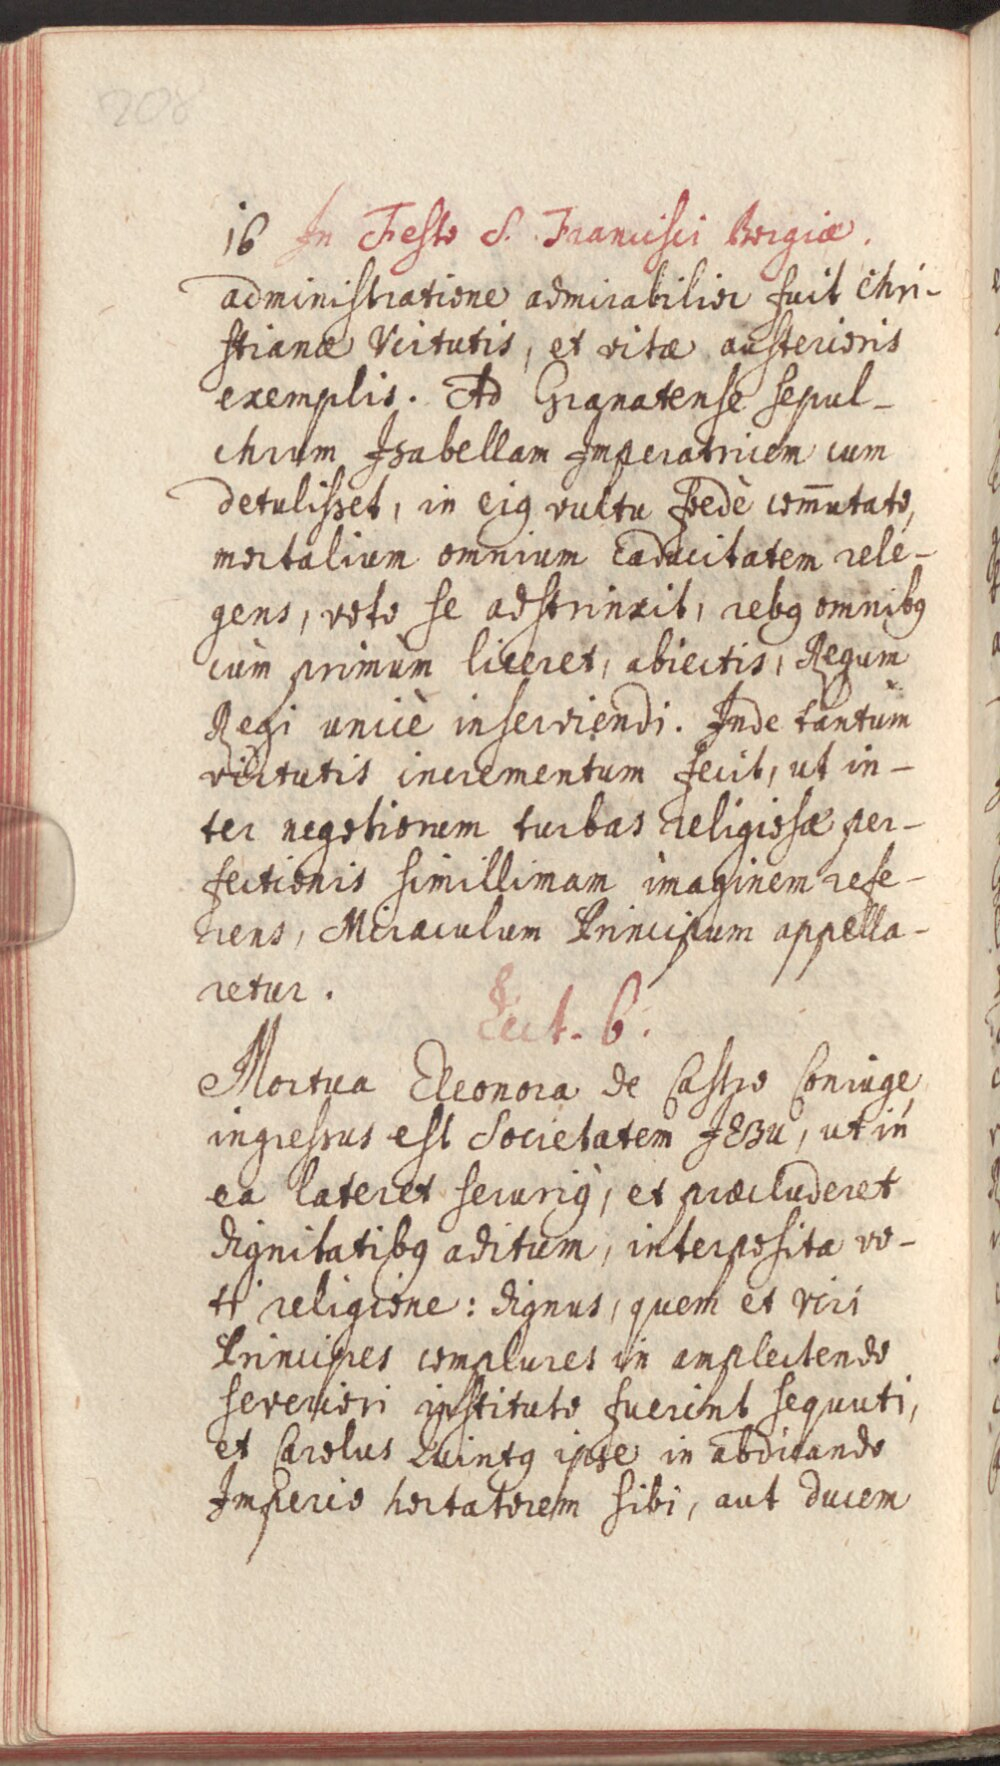 208
16 In Festo S. Francisci Borgiæ.
administratione admirabilior fuit Chri-
stianæ Virtutis, et vitæ austerioris
exemplis. Ad Granatense sepul-
chrum Isabellam Imperatricem cum
detulisset, in eiꝰ vultu fœdè com̄utato,
mortalium omnium caducitatem rele-
gens, voto se adstrinxit, rebꝰ omnibꝰ
cùm primùm liceret, abiectis, Regum
Regi unicè inserviendi. Inde tantùm
virtutis incrementum fecit, ut in-
ter negotiorum turbas religiosæ per-
fectionis simillimam imaginem refe-
rens, Miraculum Principum appella-
retur.
Lect. 6.
Mortua Eleonora de Castro Coniuge,
ingressus est Societatem JESU, ut in
ea lateret securiꝰ, et præcluderet
dignitatibꝰ aditum, interposita vo-
ti religione: dignus, quem et viri
Principes complures in amplectendo
severiori instituto fuerint sequuti,
et Carolus Quintꝰ ipse in abdicando
Imperio hortatorem sibi, aut ducem